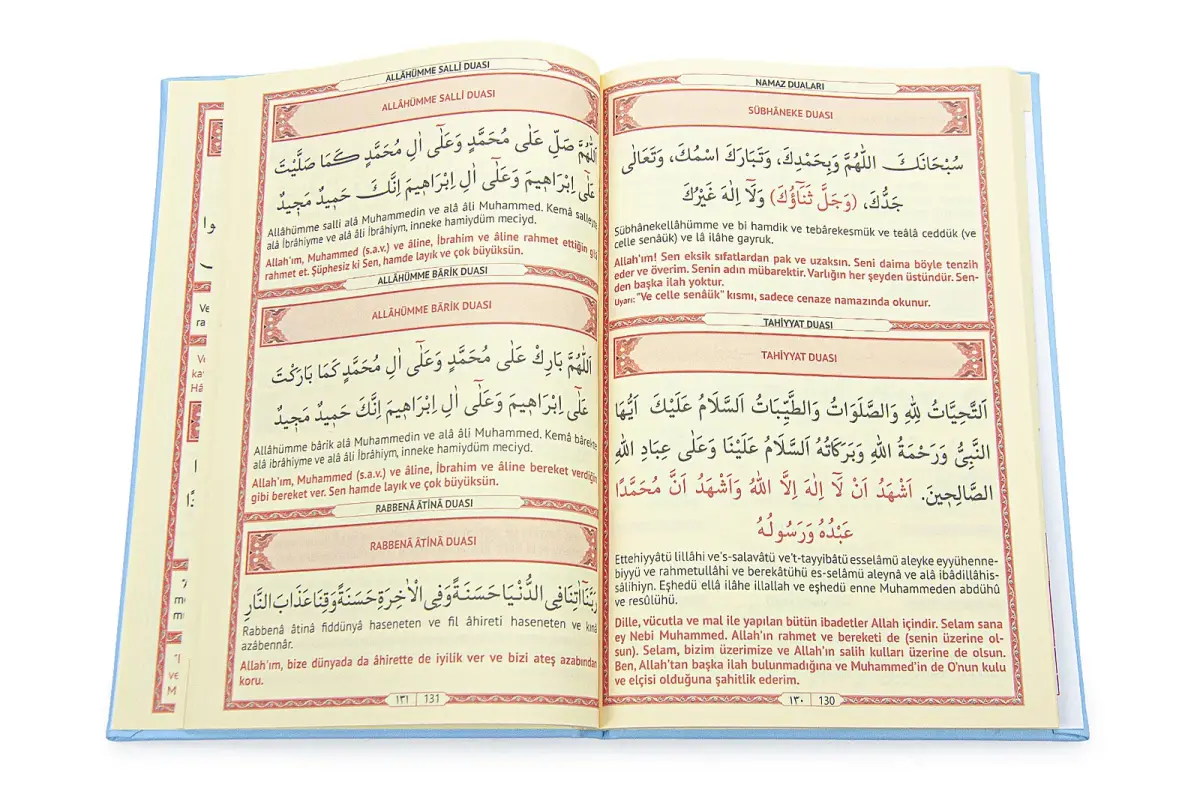 NAMAZ DUALARI
SÜBHÂNEKE DUASI
سُبْحَانَكَ اللّٰهُمَّ وَبِحَمْدِكَ، وَتَبَارَكَ اسْمُكَ، وَتَعَالٰى
جَدُّكَ، (وَجَلَّ ثَنَٓاؤُكَ) وَلَٓا اِلٰهَ غَيْرُكَ
Sübhânekellâhümme ve bi hamdik ve tebârekesmük ve teâlâ ceddük (ve
celle senâük) ve lâ ilâhe gayruk,
Allah'ım! Sen eksik sıfatlardan pak ve uzaksın. Seni daima böyle tenzih
eder ve överim. Senin adın mübarektir. Varlığın her şeyden üstündür. Sen-
den başka ilah yoktur.
Uyarı: "Ve celle senâük" kısmı, sadece cenaze namazında okunur.
TAHİYYAT DUASI
TAHİYYAT DUASI
اَلتَّحِيَّاتُ لِلّٰهِ وَالصَّلَوَاتُ وَالطَّيِّبَاتُ اَلسَّلَامُ عَلَيْكَ اَيُّهَا
النَّبِيُّ وَرَحْمَةُ اللّٰهِ وَبَرَكَاتُهُ اَلسَّلَامُ عَلَيْنَا وَعَلٰى عِبَادِ اللّٰهِ
الصَّالِحٖينَ. اَشْهَدُ اَنْ لَٓا اِلٰهَ اِلَّا اللّٰهُ وَاَشْهَدُ اَنَّ مُحَمَّدًا
عَبْدُهُ وَرَسُولُهُ
Ettehiyyâtü lillâhi ve's-salavâtü ve't-tayyibâtü esselâmü aleyke eyyühenne-
biyyü ve rahmetullahi ve berekâtühü es-selâmü aleynâ ve alâ ibâdillâhis-
sâlihiyn. Eşhedü ellâ ilâhe illallah ve eşhedü enne Muhammeden abdühû
ve resûlühü.
Dille, vücutla ve mal ile yapılan bütün ibadetler Allah içindir. Selam sana
ey Nebi Muhammed. Allah'ın rahmet ve bereketi de (senin üzerine ol-
sun). Selam, bizim üzerimize ve Allah'ın salih kulları üzerine de olsun.
Ben, Allah'tan başka ilah bulunmadığına ve Muhammed'in de O'nun kulu
ve elçisi olduğuna şahitlik ederim.
١٣٠ 130
ALLÂHÜMME SALLÎ DUASI
ALLÂHÜMME SALLÎ DUASI
اَللّٰهُمَّ صَلِّ عَلٰى مُحَمَّدٍ وَعَلٰٓى اٰلِ مُحَمَّدٍ كَمَا صَلَّيْتَ
عَلٰٓى اِبْرَاهِيمَ وَعَلٰٓى اٰلِ اِبْرَاهِيمَ اِنَّكَ حَمٖيدٌ مَجٖيدٌ
Allâhümme salli alâ Muhammedin ve alâ âli Muhammed. Kemâ salleyte
alâ İbrâhiyme ve alâ âli İbrahiym, inneke hamiydüm meciyd.
Allah'ım, Muhammed (s.a.v.) ve âline, İbrahim ve âline rahmet ettiğin gibi
rahmet et. Şüphesiz ki Sen, hamde layık ve çok büyüksün.
ALLÂHÜMME BÂRİK DUASI
ALLÂHÜMME BÂRİK DUASI
اَللّٰهُمَّ بَارِكْ عَلٰى مُحَمَّدٍ وَعَلٰٓى اٰلِ مُحَمَّدٍ كَمَا بَارَكْتَ
عَلٰٓى اِبْرَاهِيمَ وَعَلٰٓى اٰلِ اِبْرَاهِيمَ اِنَّكَ حَمٖيدٌ مَجٖيدٌ
Allâhümme bârik alâ Muhammedin ve alâ âli Muhammed. Kemâ bârekte
alâ ibrâhiyme ve alâ âli İbrahiym, inneke hamiydüm meciyd.
Allah'ım, Muhammed (s.a.v.) ve âline, İbrahim ve âline bereket verdiğin
gibi bereket ver. Sen hamde layık ve çok büyüksün.
RABBENÂ ÂTİNÂ DUASI
RABBENÂ ÂTİNÂ DUASI
رَبَّنَٓا اٰتِنَا فِي الدُّنْيَا حَسَنَةً وَفِي الْاٰخِرَةِ حَسَنَةً وَقِنَا عَذَابَ النَّارِ
Rabbenâ âtinâ fiddünyâ haseneten ve fil âhireti haseneten ve kınâ
azâbennâr.
Allah'ım, bize dünyada da âhirette de iyilik ver ve bizi ateş azabından
koru.
١٣١ 131